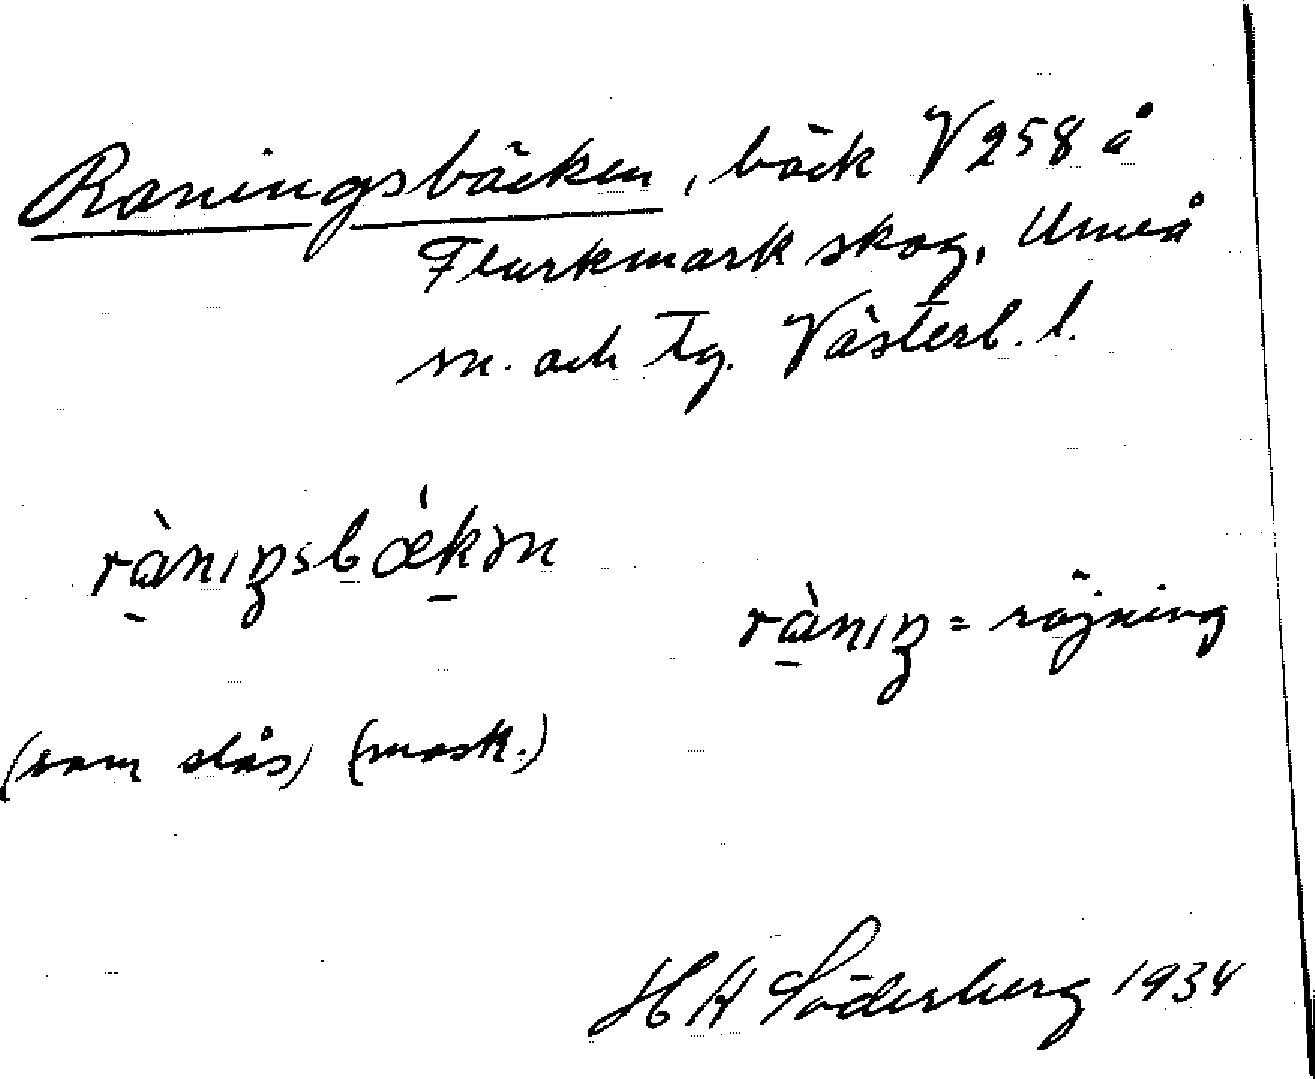 Raningsbäcken, bäck V 258 å
Flurkmark skog, Umeå
sn. och tg. Västerb. l.
rànıŋsbǽkən
ràniŋ = röjning
(som slås) (mask.)
H A Söderberg 1934